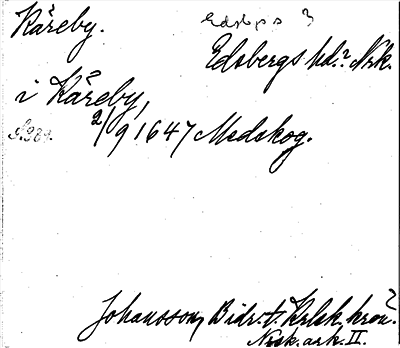 Kåreby.
Edsbergs hd.? Nrk.
i Kåreby,
2/9 1647 Medskog.
Johansson, Bidr. t. Krlsk. kron?
Nrsk. ark. II.